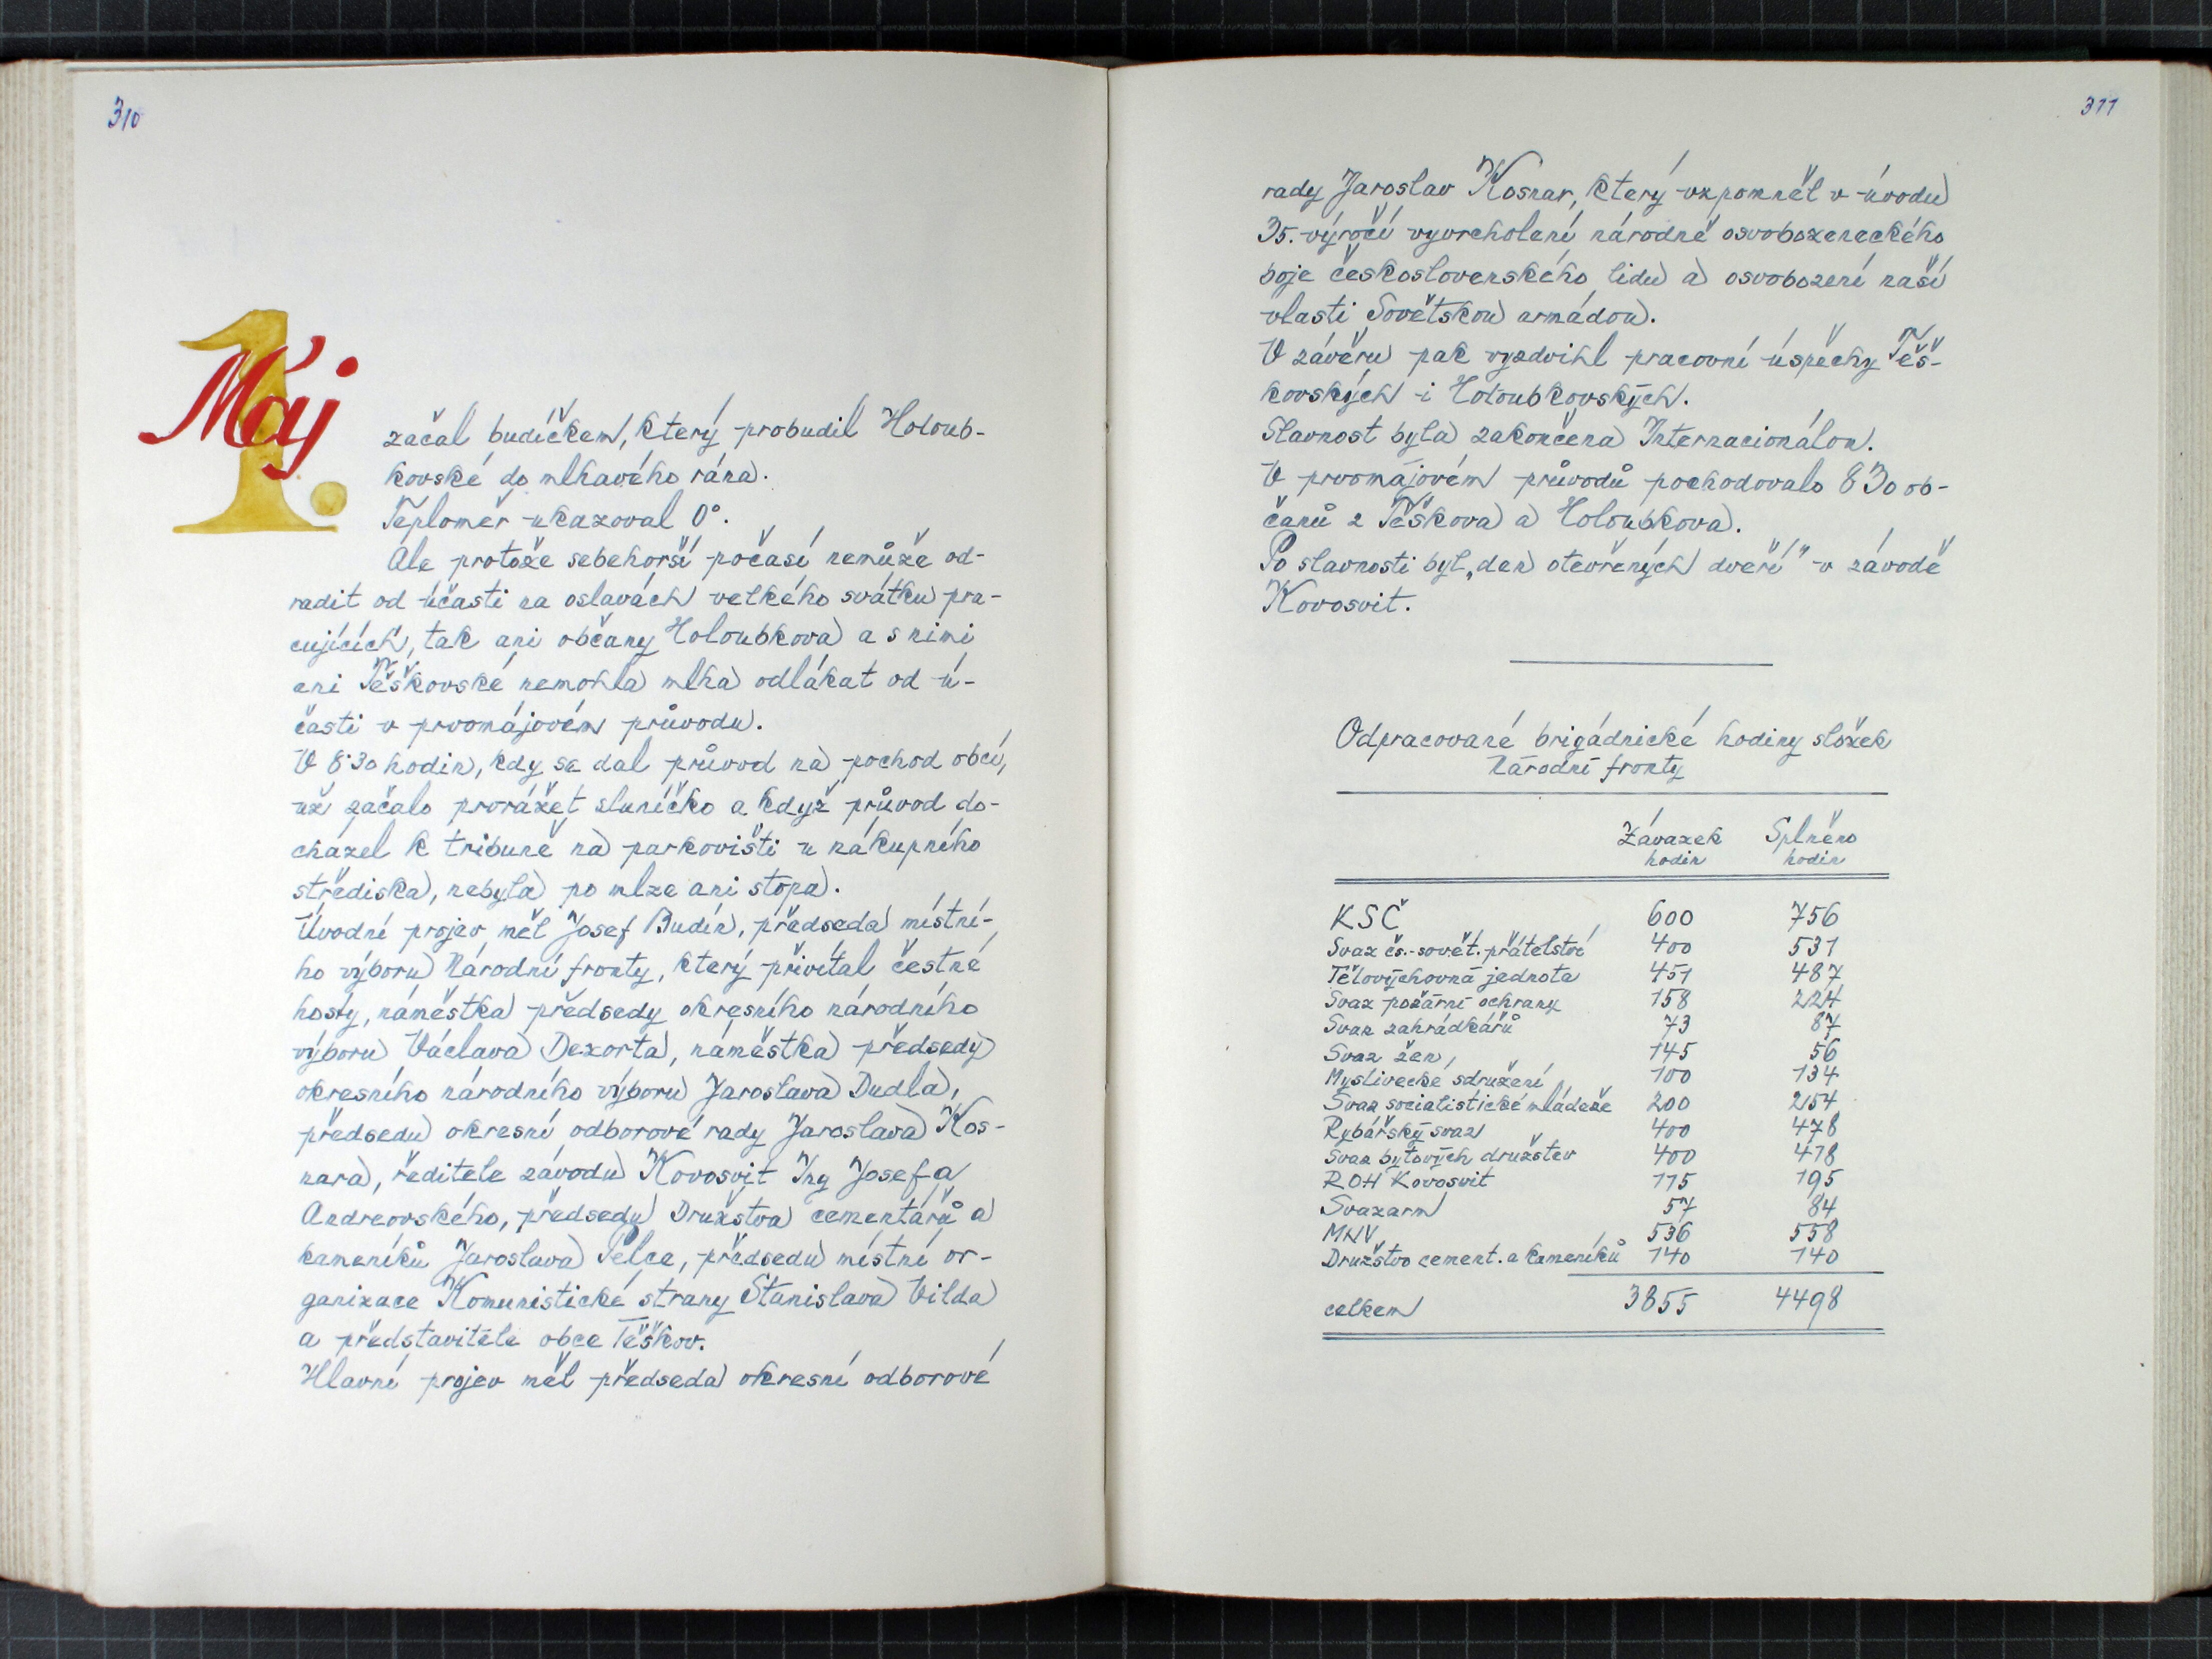 310
1. Máj
začal budíčkem, který probudil Holoub-
kovské do mlhavého rána.
Teploměr ukazoval 0°.
Ale protože sebehorší počasí nemůže od-
radit od účasti na oslavách velkého svátku pra-
cujících, tak ani občany Holoubkova a s nimi
ani Těškovské nemohla mlha odlákat od ú-
časti v prvomájovém průvodu.
V 8·30 hodin, kdy se dal průvod na pochod obcí,
už začalo prorážet sluníčko a když průvod do-
cházel k tribuně na parkovišti u nákupního
střediska, nebyla po mlze ani stopa.
Úvodní projev měl Josef Budín, předseda místní-
ho výboru Národní fronty, který přivítal čestné
hosty, náměstka předsedy okresního národního
výboru Václava Dezorta, náměstka předsedy
okresního národního výboru Jaroslava Dudla,
předsedu okresní odborové rady Jaroslava Kos-
nara, ředitele závodu Kovosvit Ing Josefa
Andreovského, předsedu Družstva cementářů a
kameníků Jaroslava Pelce, předsedu místní or-
ganizace Komunistické strany Stanislava Vilda
a představitele obce Těškov.
Hlavní projev měl předseda okresní odborové
311
rady Jaroslav Kosnar, který vzpomněl v úvodu
35. výročí vyvrcholení národně osvobozeneckého
boje československého lidu a osvobození naší
vlasti Sovětskou armádou.
V závěru pak vyzdvihl pracovní úspěchy Těš-
kovských i Holoubkovských.
Slavnost byla zakončena Internacionálou.
V prvomájovém průvodů pochodovalo 830 ob-
čanů z Těškova a Holoubkova.
Po slavnosti byl „den otevřených dveří" v závodě
Kovosvit.
Odpracované brigádnické hodiny složek
Národní fronty
Závazek Splněno
hodin hodin
KSČ 600 756
Svaz čs.-sovět. přátelství 400 531
Tělovýchovná jednota 451 487
Svaz požární ochrany 158 224
Svaz zahrádkářů 73 87
Svaz žen 145 56
Myslivecké sdružení 100 134
Svaz socialistické mládeže 200 254
Rybářský svaz 400 478
Svaz bytových družstev 400 478
ROH Kovosvit 175 195
Svazarm 57 84
MNV 536 558
Družstvo cement. a kameníků 140 140
celkem 3855 4498